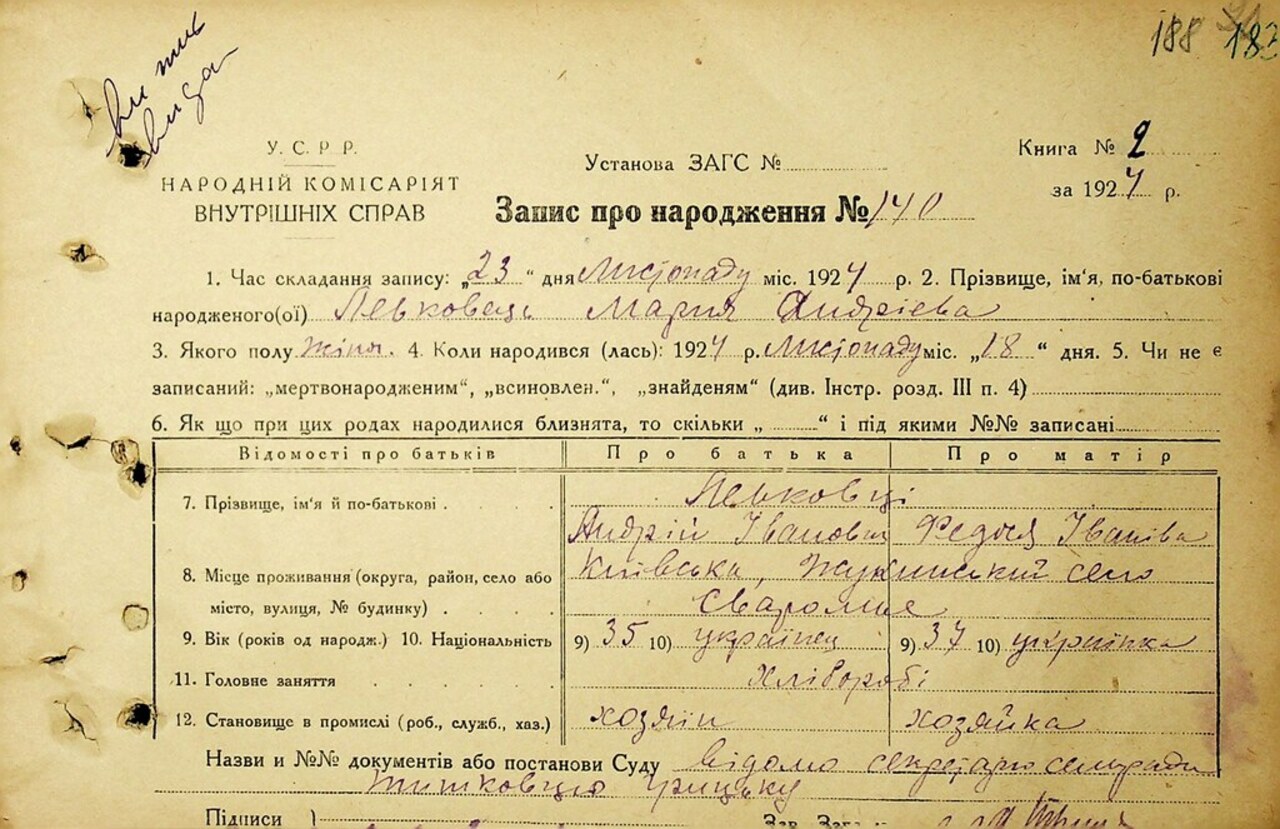 188 183
У. С. Р. Р.
НАРОДНІЙ КОМІСАРІЯТ
ВНУТРІШНІХ СПРАВ
Установа ЗАГС №
Запис про народження № 140
Книга № 2
за 1927 р.
1. Час складання запису: „23“ дня Листопаду міс. 1927 р. 2. Прізвище, ім'я, по-батькові
народженого(ої) Левковець Мария Андрієва
3. Якого полу жіноч. 4. Коли народився (лась): 1927 р. Листопаду міс. „18“ дня. 5. Чи не є
записаний: „мертвонародженим“, „всиновлен.“, „знайденям“ (див. Інстр. розд. III п. 4)
6. Як що при цих родах народилися близнята, то скільки „ “ і під якими №№ записані
Відомості про батьків Про батька Про матір
7. Прізвище, ім'я й по-батькові Левковці
Андрій Іванович Федося Іванівна
8. Місце проживання (округа, район, село або Київська, Жукинський село
місто, вулиця, № будинку) Сваромье
9. Вік (років од народж.) 10. Національність 9) 35 10) українец 9) 37 10) українка
11. Головне заняття Хлібороби
12. Становище в промислі (роб., служб., хаз.) хозяїн хозяйка
Назви и №№ документів або постанови Суду відомо секретарю сельради
Підписи